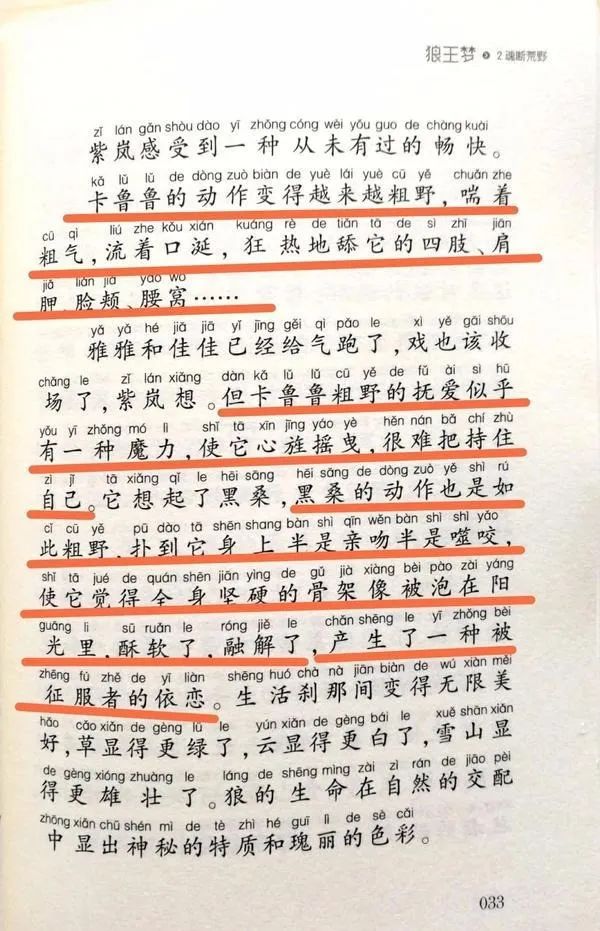 狼王梦 2 魂断荒野
zǐ lán gǎn shòu dào yī zhǒng cóng wèi yǒu guo de chàng kuài
紫岚感受到一种从未有过的畅快。
kǎ lǔ lǔ de dòng zuò biàn de yuè lái yuè cū yě chuǎn zhe
卡鲁鲁的动作变得越来越粗野，喘着
cū qì liú zhe kǒu xián kuáng rè de tiǎn tā de sì zhī jiān
粗气，流着口涎，狂热地舔它的四肢、肩
jiǎ liǎn jiá yāo wō
胛、脸颊、腰窝……
yǎ yǎ hé jiā jiā yǐ jīng gěi qì pǎo le xì yě gāi shōu
雅雅和佳佳已经给气跑了，戏也该收
chǎng le zǐ lán xiǎng dàn kǎ lǔ lǔ cū yě de fǔ ài sì hū
场了，紫岚想。但卡鲁鲁粗野的抚爱似乎
yǒu yī zhǒng mó lì shǐ tā xīn jīng yáo yè hěn nán bǎ chí zhù
有一种魔力，使它心旌摇曳，很难把持住
zì jǐ tā xiǎng qǐ le hēi sāng hēi sāng de dòng zuò yě shì rú
自己。它想起了黑桑，黑桑的动作也是如
cǐ cū yě pū dào tā shēn shang bàn shì qīn wěn bàn shì shì yǎo
此粗野，扑到它身上半是亲吻半是噬咬，
shǐ tā jué de quán shēn jiān yìng de gǔ jià xiàng bèi pào zài yáng
使它觉得全身坚硬的骨架像被泡在阳
guāng li sū ruǎn le róng jiě le chǎn shēng le yī zhǒng bèi
光里，酥软了，融解了，产生了一种被
zhēng fú zhě de yī liàn shēng huó chà nà jiān biàn de wú xiàn měi
征服者的依恋。生活刹那间变得无限美
hǎo cǎo xiǎn de gèng lǜ le yún xiǎn de gèng bái le xuě shān xiǎn
好，草显得更绿了，云显得更白了，雪山显
de gèng xióng zhuàng le láng de shēng mìng zài zì rán de jiāo pèi
得更雄壮了。狼的生命在自然的交配
zhōng xiǎn chū shén mì de tè zhì hé guī lì de sè cǎi
中显出神秘的特质和瑰丽的色彩。
033